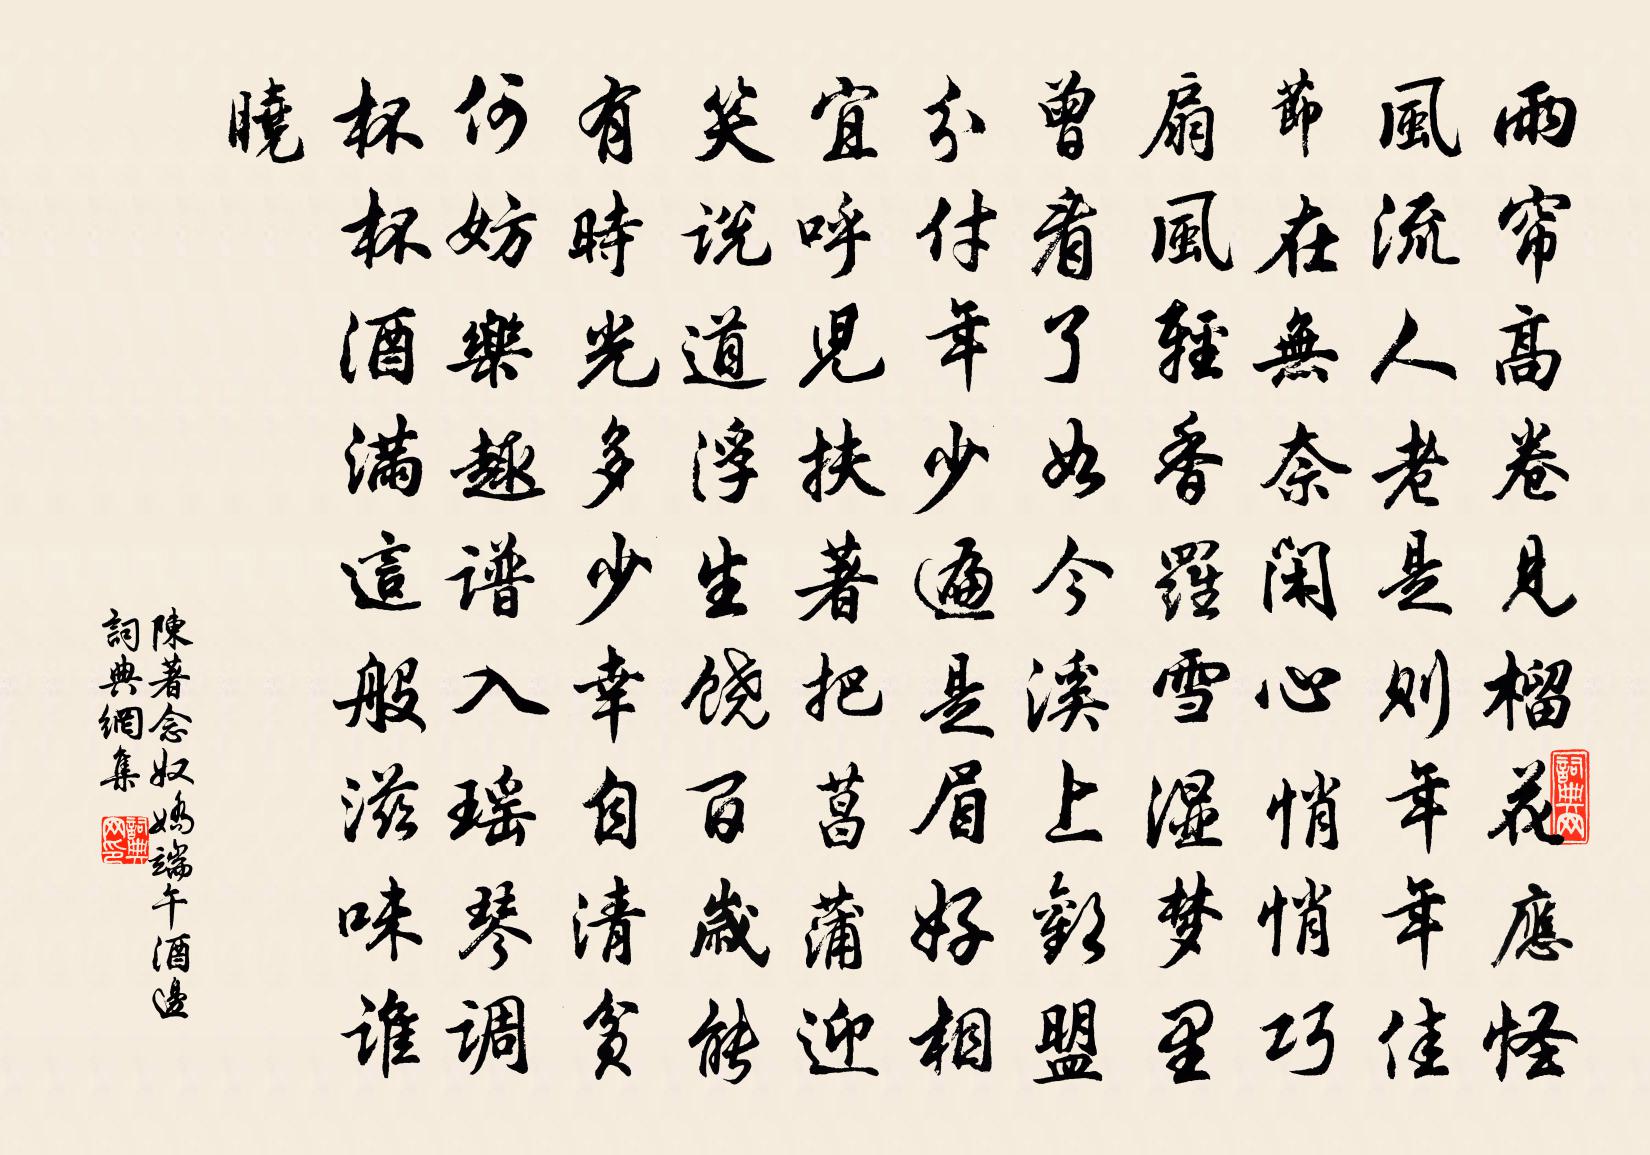 雨帘高卷見榴花應怪
風流人老是则年年佳
節在無奈闲心悄悄巧
扇風輕香羅雪湿梦里
曾看了如今溪上歡盟
分付年少遍是眉好相
宜呼兒扶著把菖蒲迎
笑说道浮生饶百歲能
有時光多少幸自清贫
何妨樂趣谱入瑶琴调
杯杯酒滿這般滋味谁
曉
陳著念奴嬌端午酒邊
詞典網集
詞典网
詞典网印